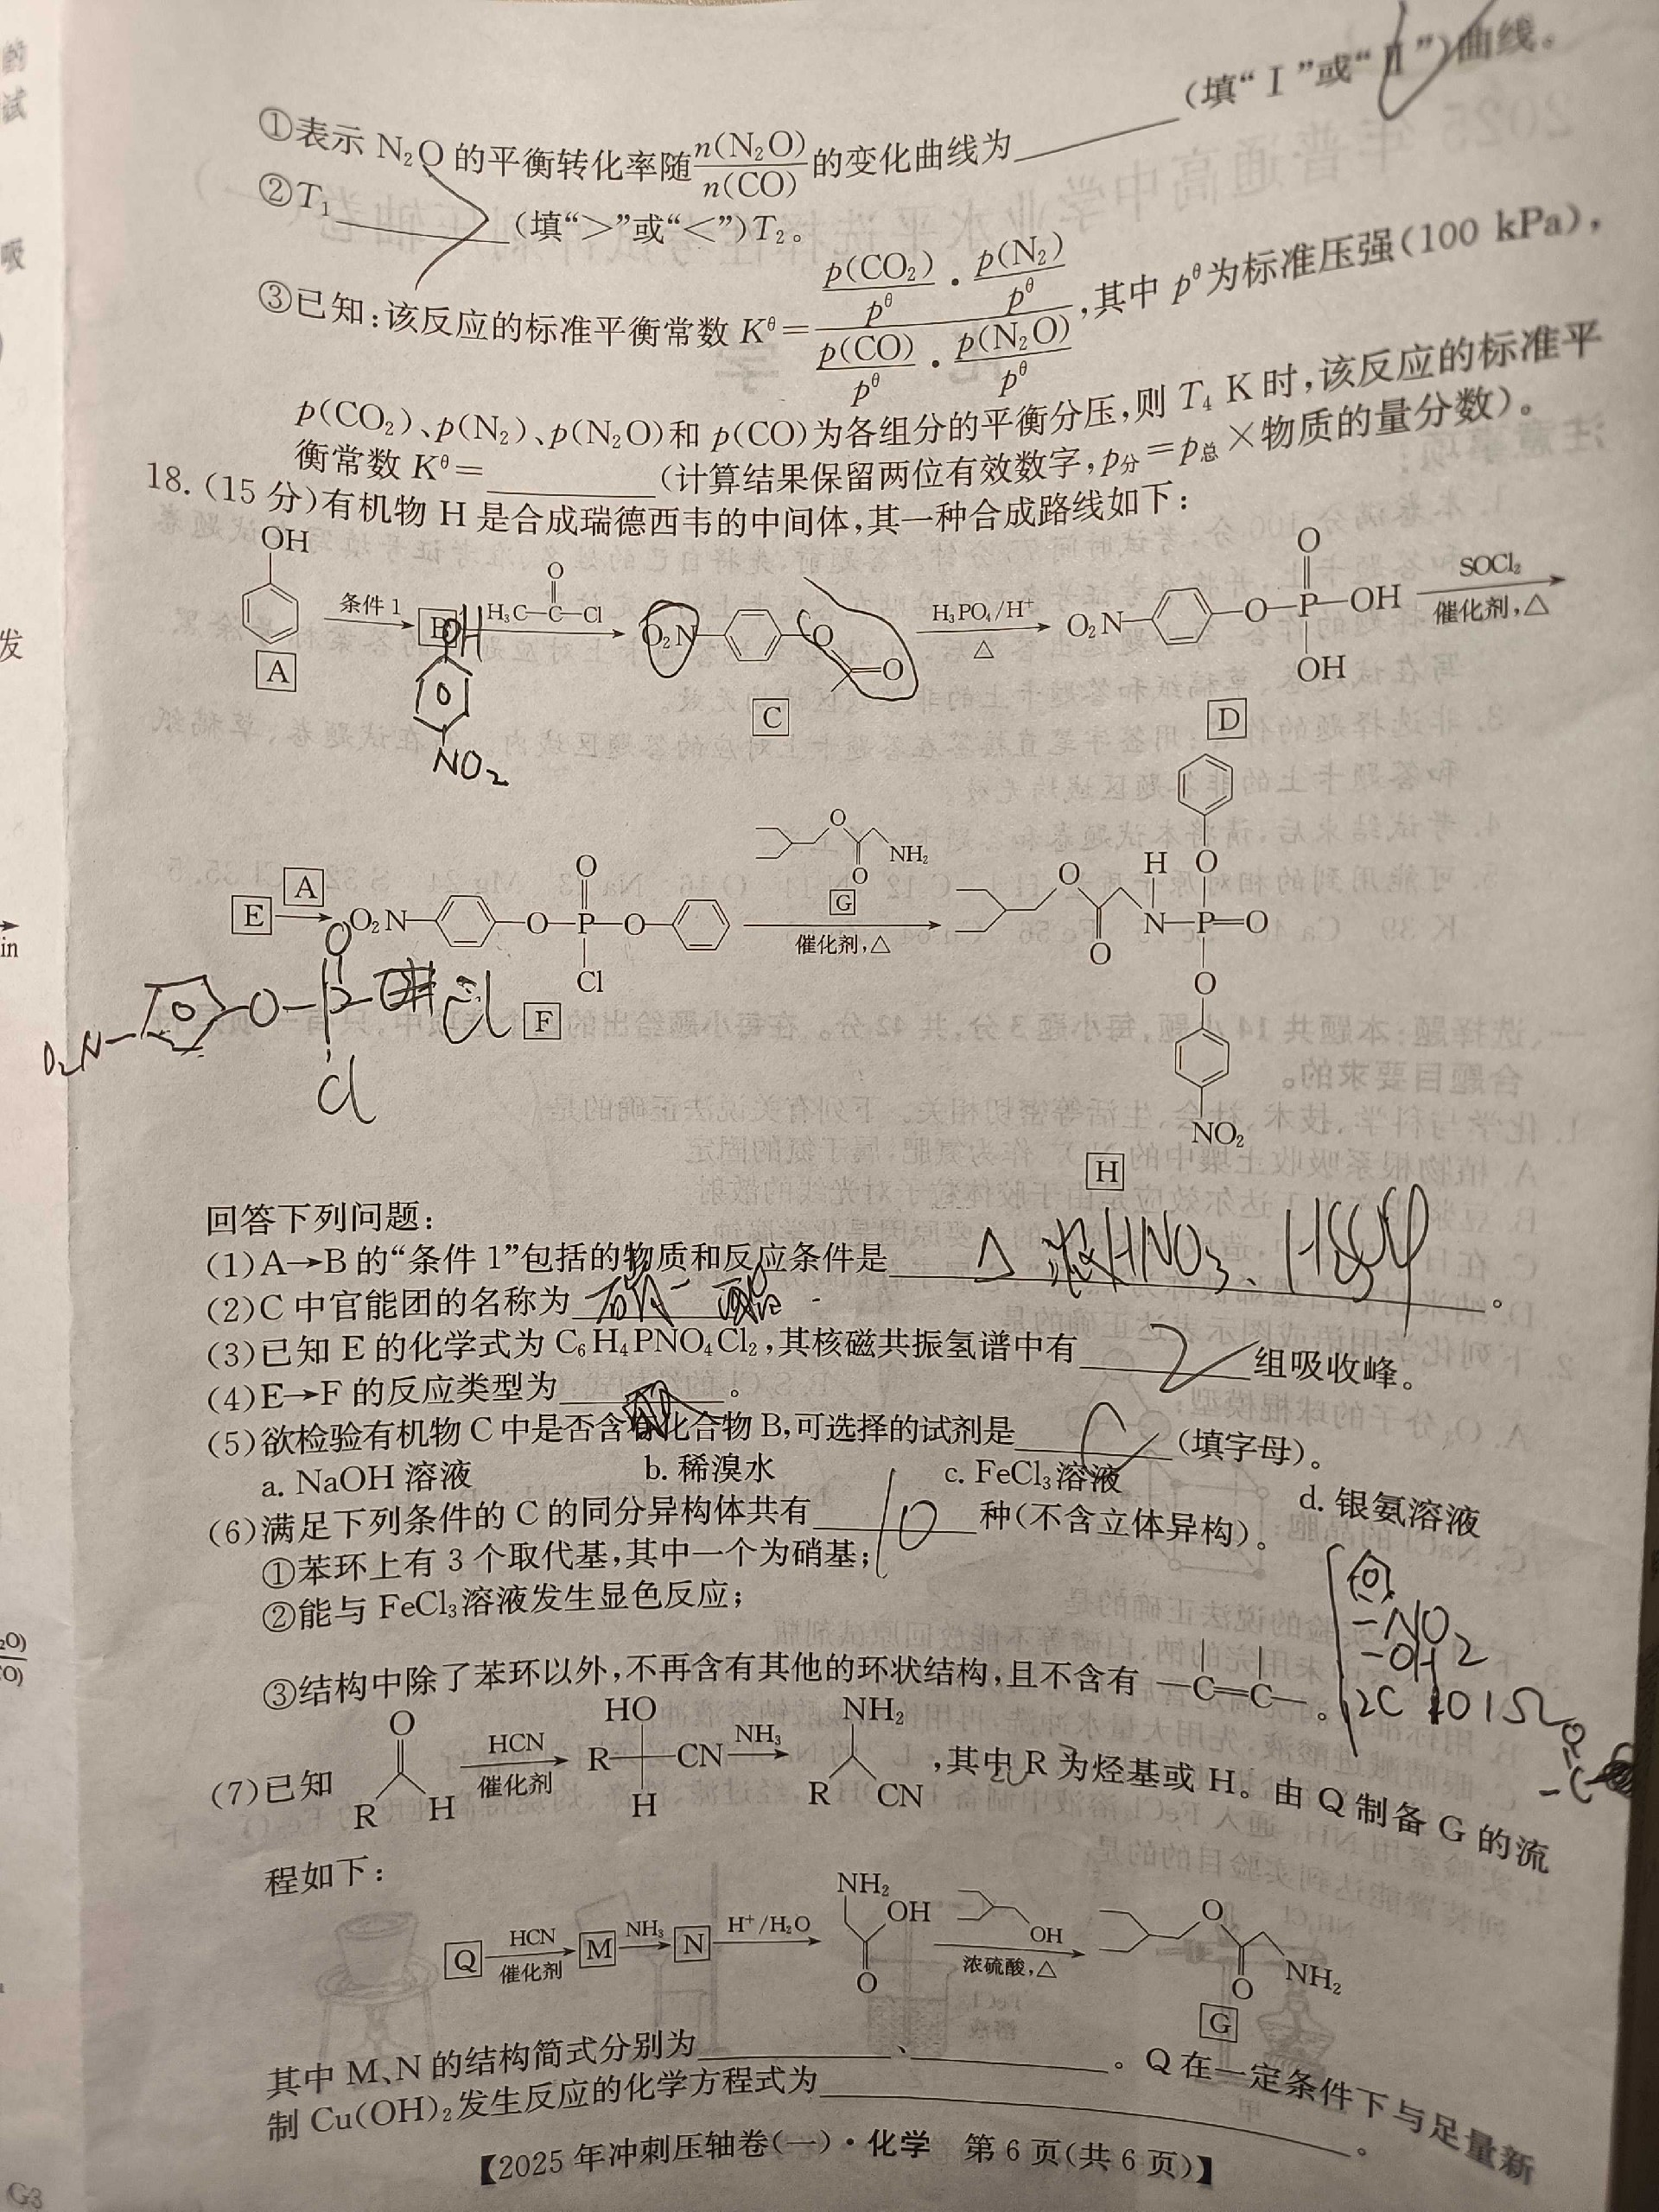 (填“Ⅰ”或“Ⅱ”)曲线。
①表示 N₂O 的平衡转化率随n(N₂O)/n(CO)的变化曲线为
②T₁ (填“>”或“<”)T₂。
③已知:该反应的标准平衡常数 Kᶿ=[p(CO₂)/pᶿ · p(N₂)/pᶿ]/[p(CO)/pᶿ · p(N₂O)/pᶿ],其中 pᶿ为标准压强(100 kPa),
p(CO₂)、p(N₂)、p(N₂O)和 p(CO)为各组分的平衡分压,则 T₄ K 时,该反应的标准平
衡常数 Kᶿ= (计算结果保留两位有效数字,p分=p总×物质的量分数)。
18.(15 分)有机物 H 是合成瑞德西韦的中间体,其一种合成路线如下:
OH
A
条件 1
B
OH
NO₂
H₃C—C—Cl
O
O₂N
O
O
C
H₃PO₄/H⁺
△
O₂N
O—P—OH
O
OH
D
SOCl₂
催化剂,△
E
A
O₂N
O—P—O
O
Cl
F
O₂N
O
O
P
Cl
Cl
O
O
NH₂
G
催化剂,△
O
O
H
N—P=O
O
O
NO₂
H
回答下列问题:
(1)A→B 的“条件 1”包括的物质和反应条件是 △ 浓HNO₃、H₂SO₄ 。
(2)C 中官能团的名称为 硝 酯
(3)已知 E 的化学式为 C₆H₄PNO₄Cl₂,其核磁共振氢谱中有 2 组吸收峰。
(4)E→F 的反应类型为 取 。
(5)欲检验有机物 C 中是否含有化合物 B,可选择的试剂是 C (填字母)。
a. NaOH 溶液 b. 稀溴水 c. FeCl₃溶液 d. 银氨溶液
(6)满足下列条件的 C 的同分异构体共有 10 种(不含立体异构)。
①苯环上有 3 个取代基,其中一个为硝基;
②能与 FeCl₃溶液发生显色反应;
③结构中除了苯环以外,不再含有其他的环状结构,且不含有 —C=C— 。
-NO₂
-OH
2C 1O 1Ω
(7)已知 R H O HCN 催化剂 R HO CN H NH₃ R NH₂ CN ,其中 R 为烃基或 H。由 Q 制备 G 的流
程如下:
Q HCN 催化剂 M NH₃ N H⁺/H₂O NH₂ OH O OH 浓硫酸,△ O O NH₂
G
其中 M、N 的结构简式分别为 、 。Q 在一定条件下与足量新
制 Cu(OH)₂发生反应的化学方程式为 。
【2025 年冲刺压轴卷(一)·化学 第 6 页(共 6 页)】
G3